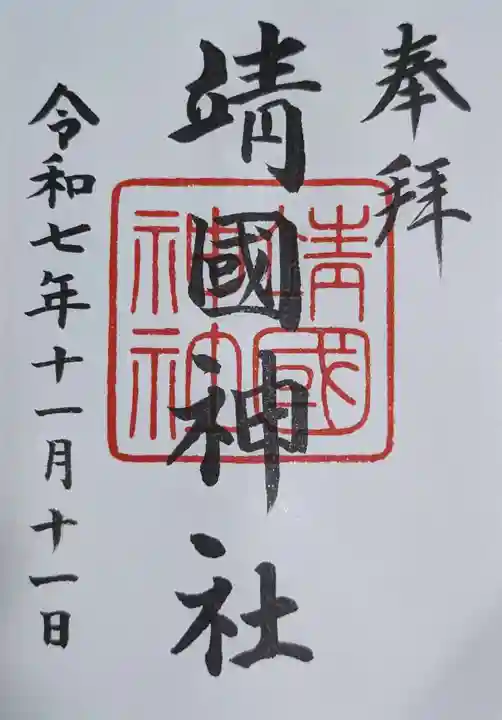 奉拝
靖國神社
靖國
神社
令和七年十一月十一日